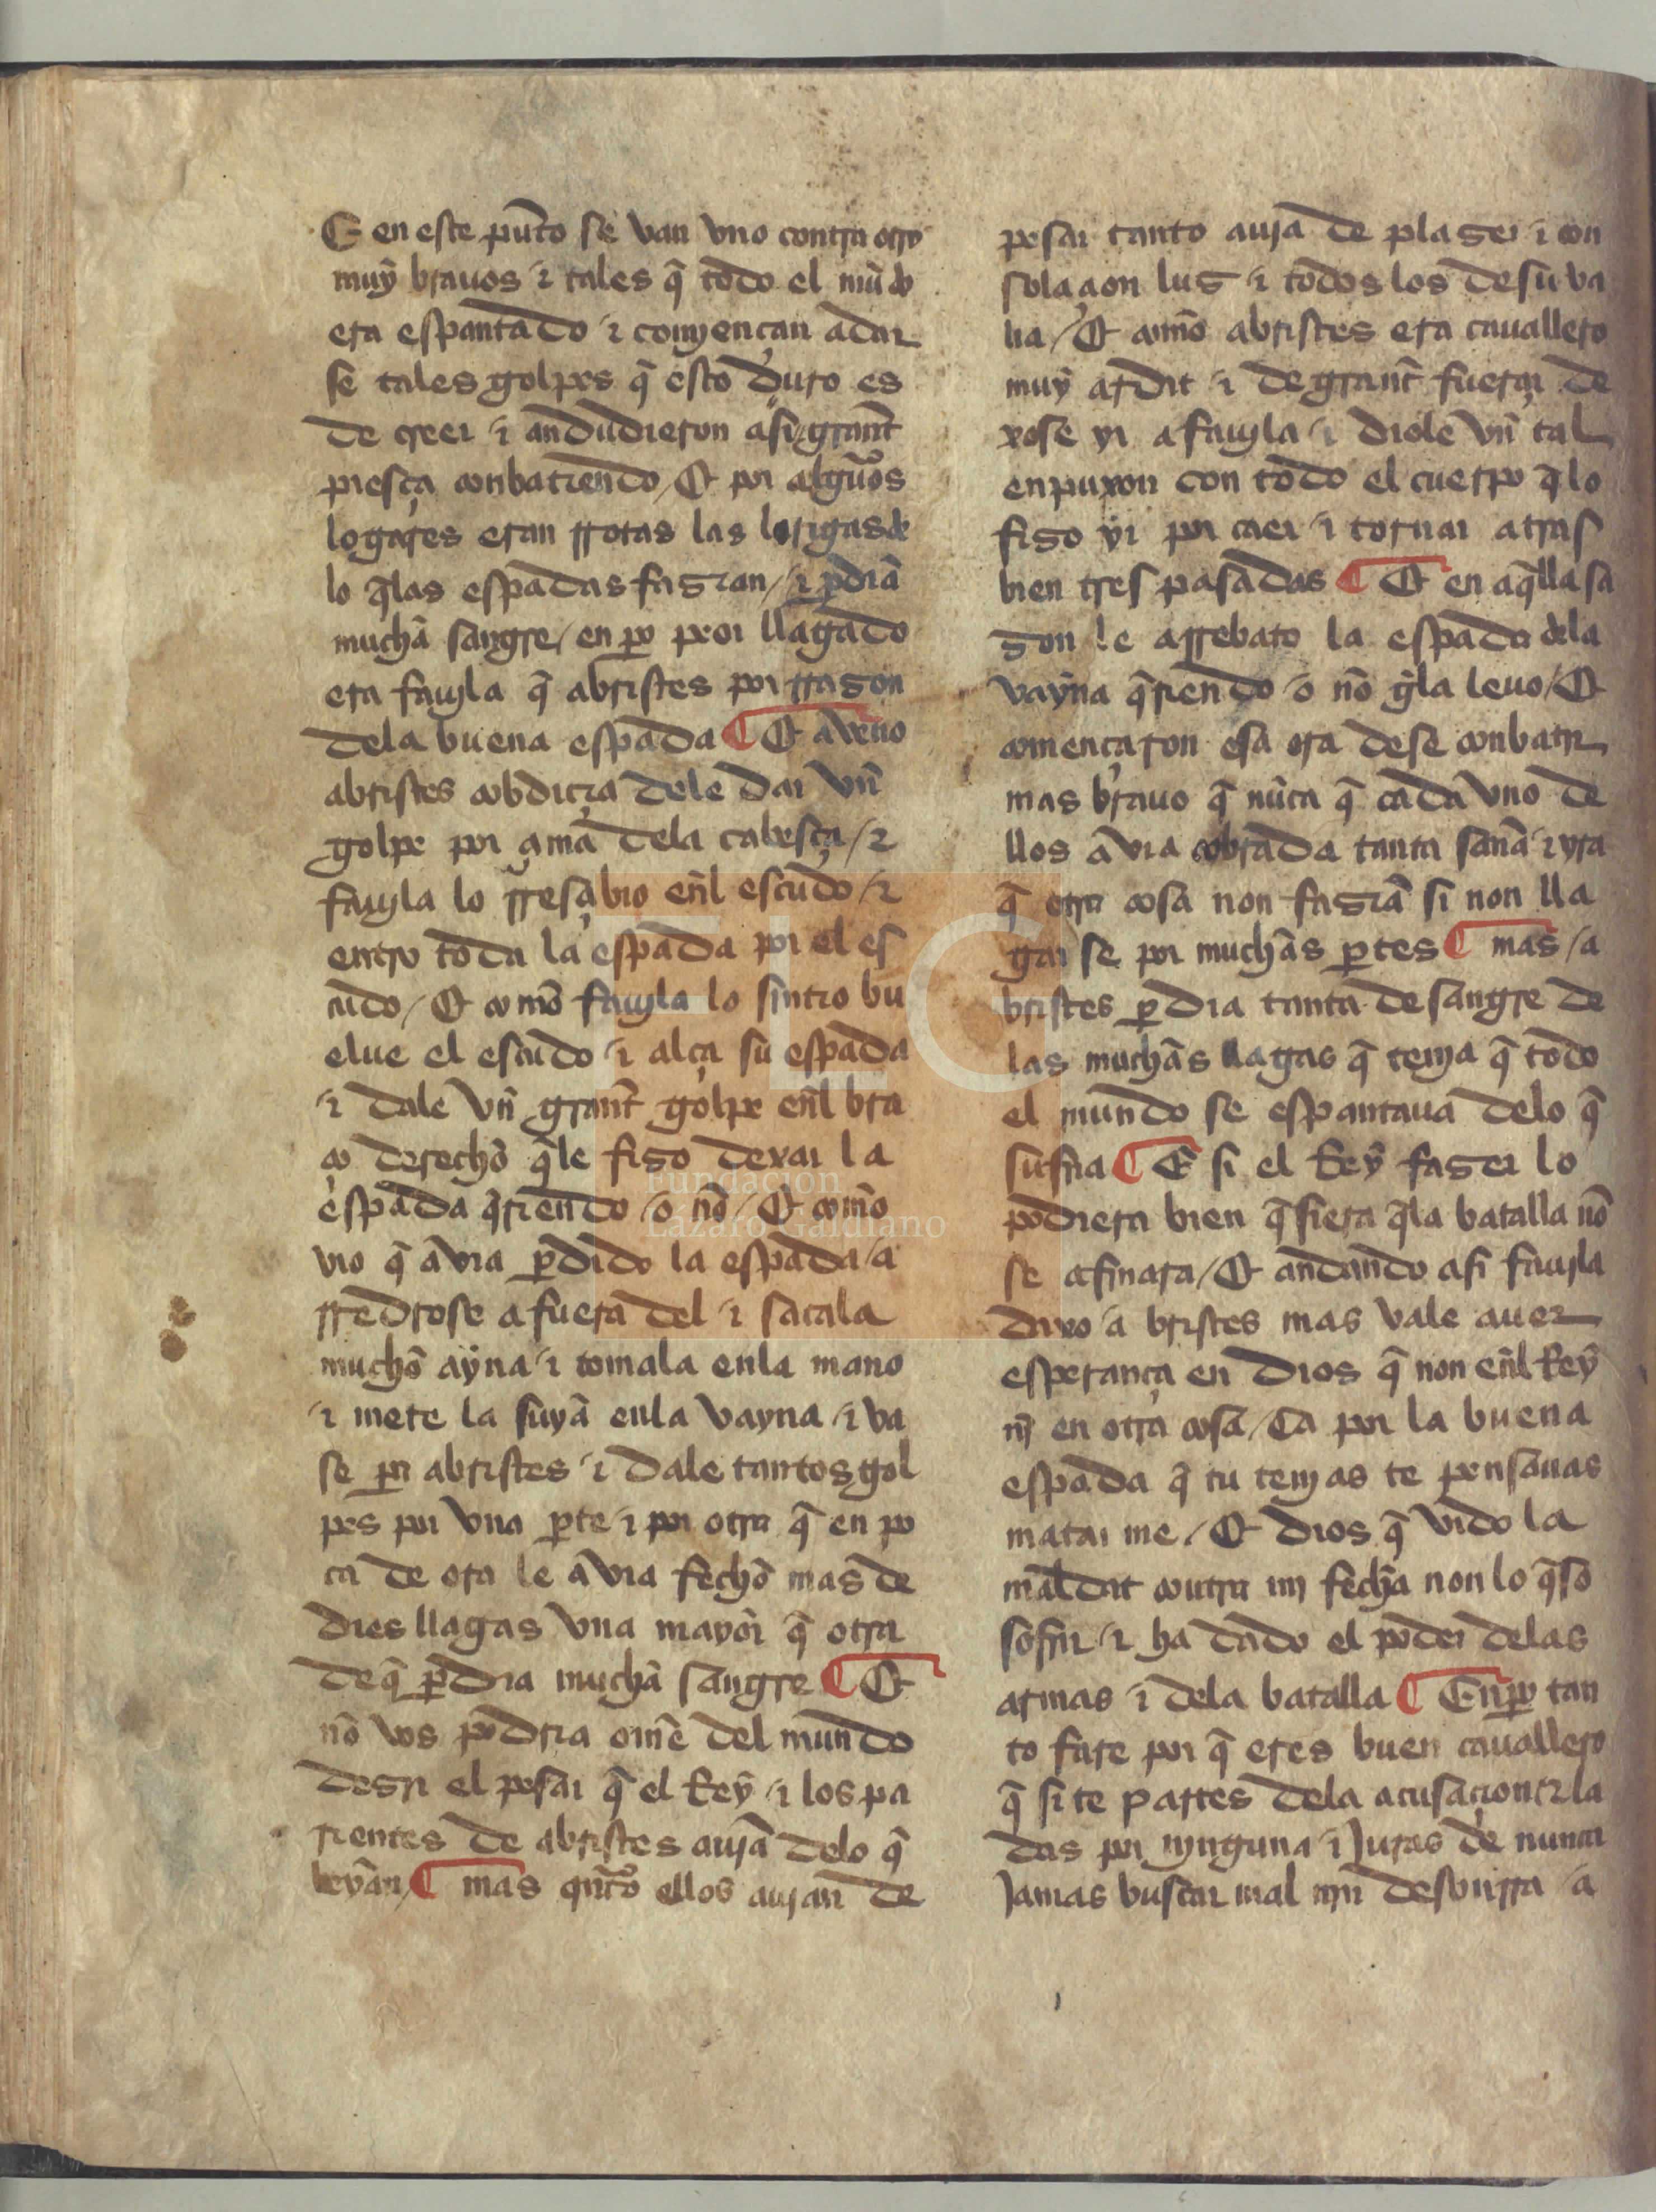 E en este pũto se van vno contra otro
muỹ brauos ⁊ tales q̃ todo el mũdo
era espantado ⁊ comyençan adar
se tales golpes q̃ esto duro es
de creer ⁊ andudieron asi grant̃
piesça conbatiendo / Et por algũos
logares eran rrotas las lorigas de
lo q̃ las espadas fazian / ⁊ ꝑdiã
muchã sangre / en ꝑo peor llagado
era fauyla q̃ abristes por rrazon
dela buena espada ¶ Et aveno
abristes cobdiçia dele dar vñ
golpe por çima dela cabesça / ⁊
fauyla lo rresçibio eñl escudo / ⁊
entro toda la espada por el es
cudo / Et comõ fauyla lo sintio bu
elue el escudo ⁊ alça su espada
⁊ dale vñ grant̃ golpe eñl bra
ço derechõ q̃le fizo dexar la
espada q̃riendo / o nõ / Et comõ
vio q̃ avia ꝑdido la espada / a
rredrose a fuera del ⁊ sacala
muchõ aỹna ⁊ tomala enla mano
⁊ mete la suyã enla vayna ⁊ va
se ꝑa abristes ⁊ dale tantos gol
pes por vna ꝑte ⁊ por otra q̃ en po
ca de ora le avia fechõ mas de
dies llagas vna mayor q̃ otra
deq̃ ꝑdia muchã sangre ¶ Et
nõ vos podria omẽ del mundo
dezir el pesar q̃ el Reỹ ⁊ los pa
rientes de abristes aujã delo q̃
veyãn / ¶ mas qñto ellos aujan de
pesar tanto aujã de plazer ⁊ con
solaçion luz ⁊ todos los de su va
lia / Et comõ abristes era cauallero
muỹ ardit ⁊ de grant̃ fuerça de
xose yr a fauyla ⁊ diole vñ tal
enpuxon con todo el cuerpo q̃ lo
fizo ỹr por caer ⁊ tornar atras
bien tres pasadas ¶ Et en aq̃lla sa
zon le arrebato la espada dela
vaỹna q̃riendo / o nõ q̃la leuo / Et
començaron esa ora dese conbatir
mas brauo q̃ nũca q̃ cada vno de
llos avia cobrada tanta sanã ⁊ yra
q̃ otra cosa non faziã si non lla
gar se por muchãs ꝑtes ¶ mas / a
bristes ꝑdia tanta de sangre de
las muchãs llagas q̃ tenja q̃ todo
el mundo se espantaua delo q̃
sufria ¶ E si el Reỹ fazer lo
podiera bien q̃siera q̃la batalla nõ
se afinara / Et andando asi fauyla
dixo / a bristes mas vale auer
esperança en dios q̃ non eñl Reỹ
nj̃ en otra cosa / Ca por la buena
espada q̃ tu tenjas te pensauas
matar me / Et dios q̃ vido la
maldat contra mj fechã non lo q̃so
sofrir ⁊ ha dado el poder delas
armas ⁊ dela batalla ¶ Enꝑo tan
to fare por q̃ eres buen cauallero
q̃ si te partes dela acusaçion ⁊ la
das por njnguna ⁊ Juras de nunca
Jamas buscar mal njn desonrra / a